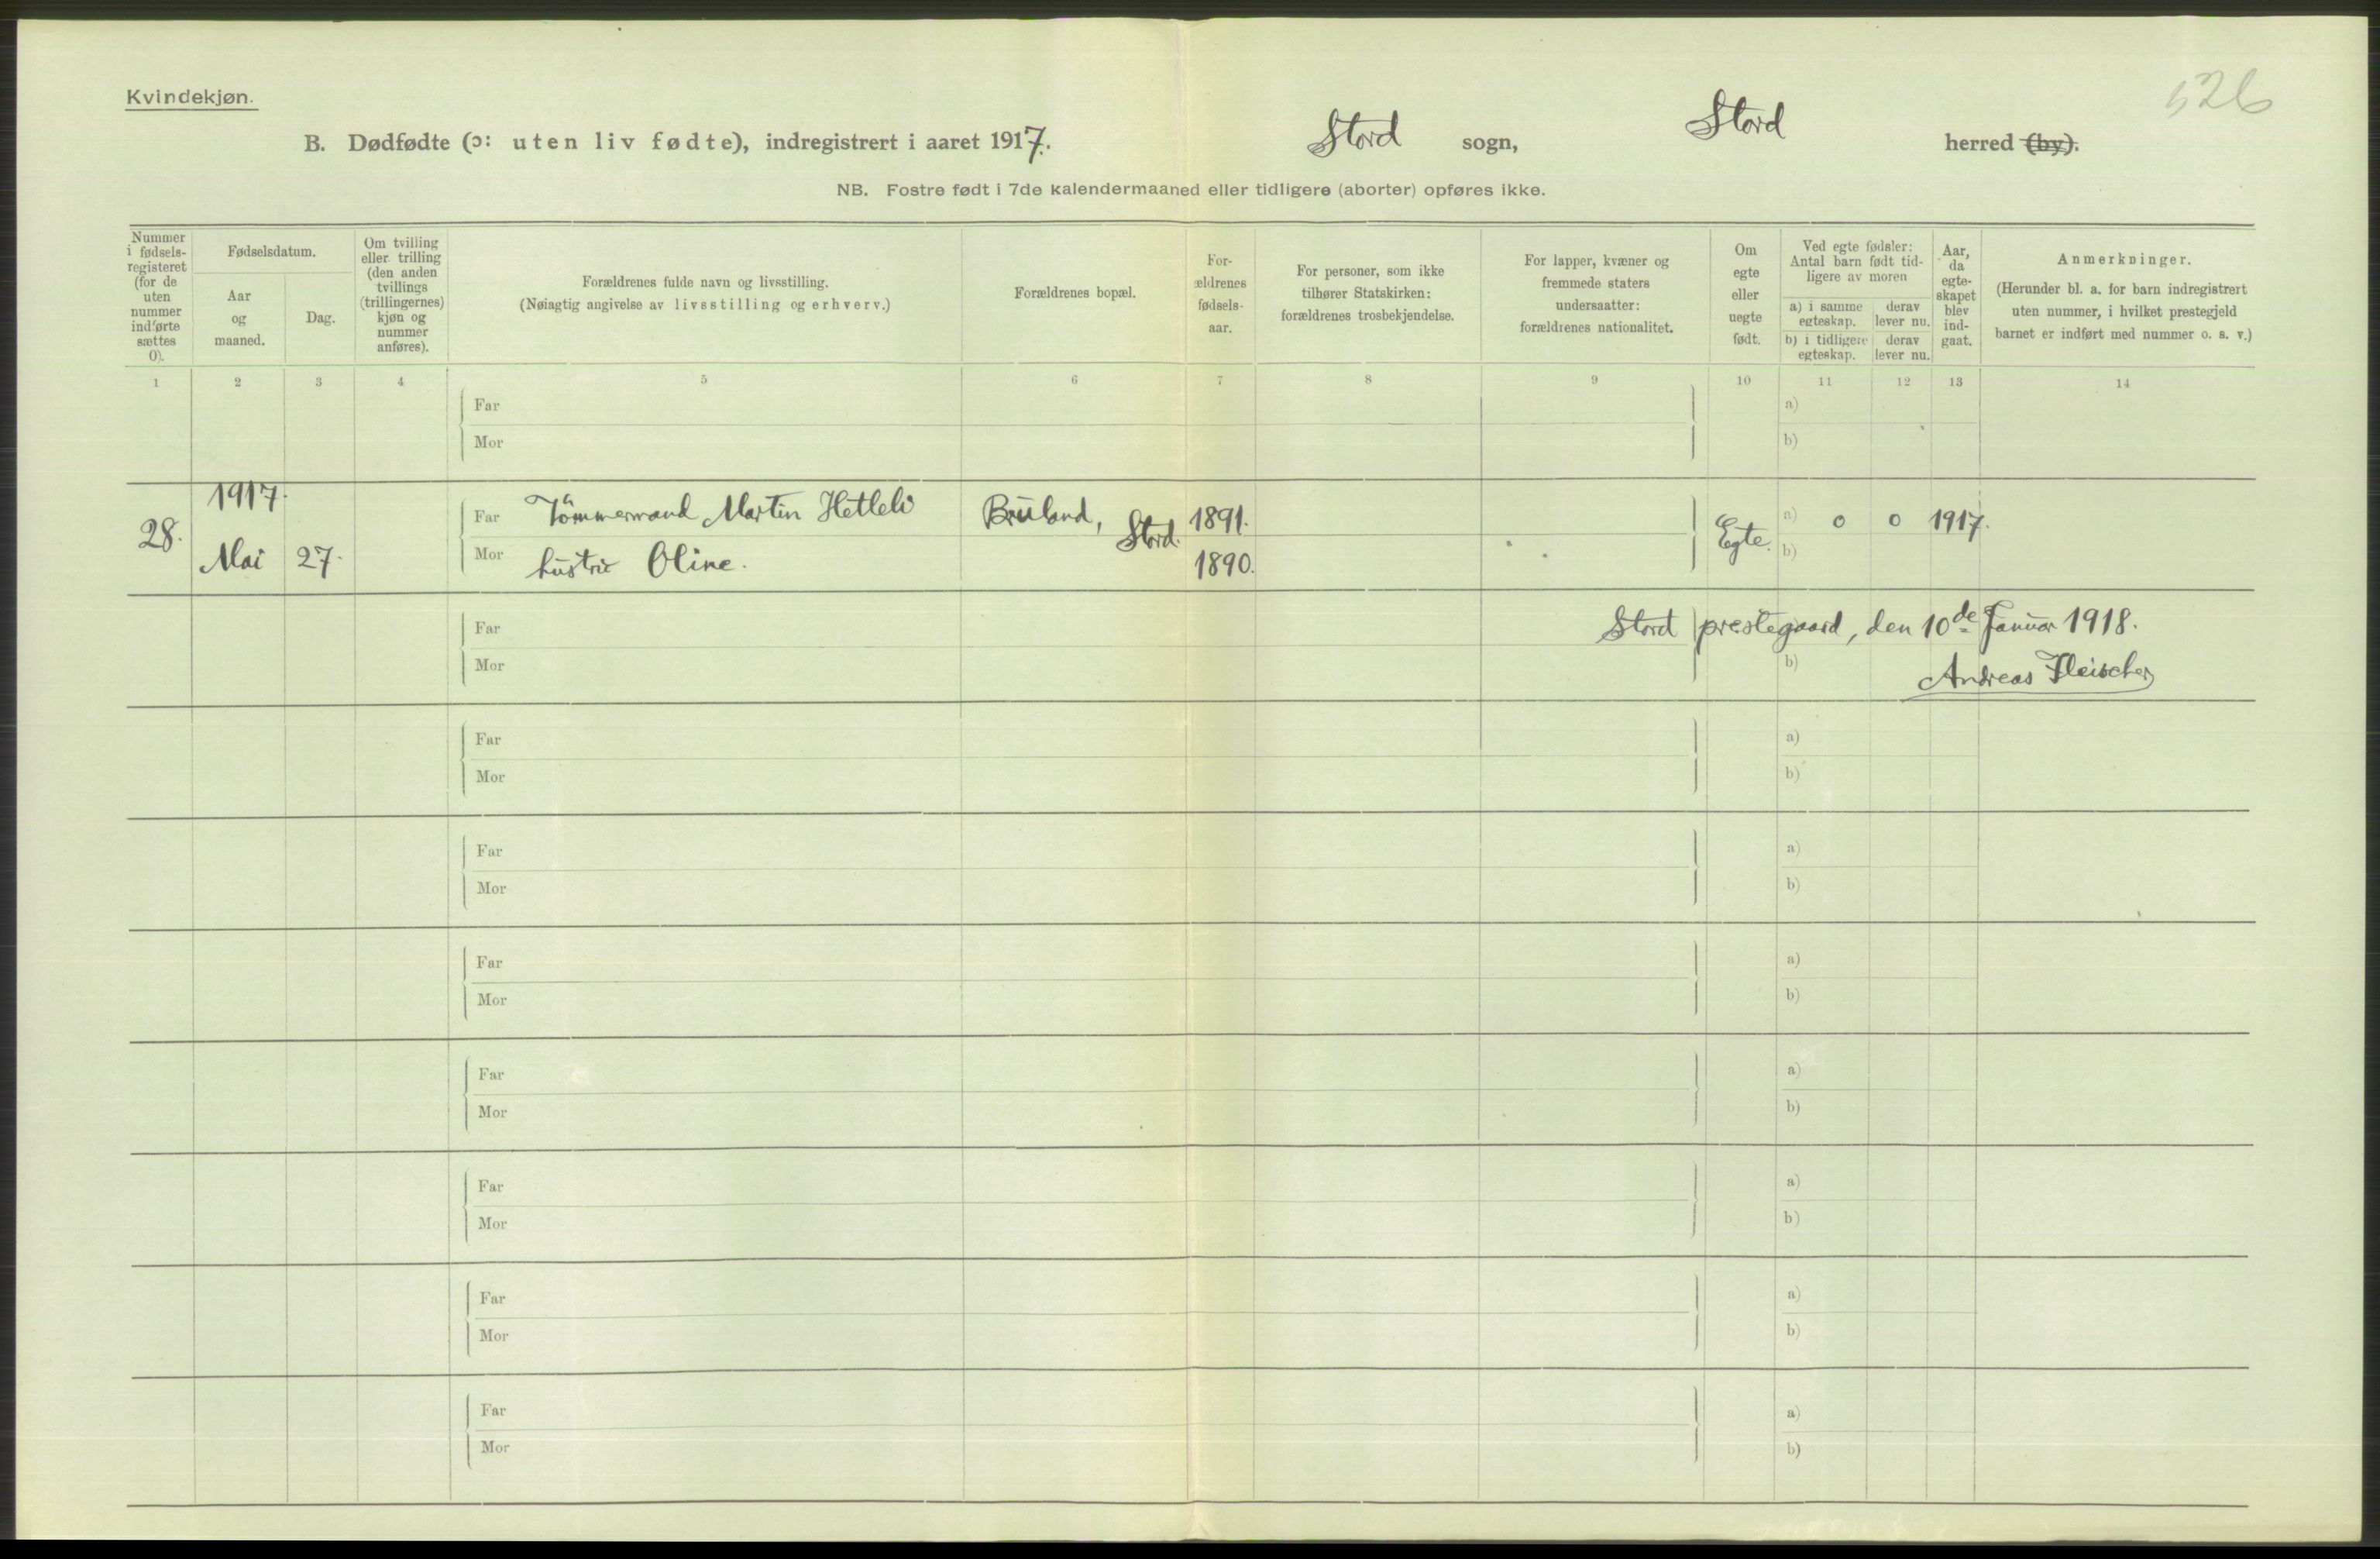 Kvindekjøn.
526
B. Dødfødte (ɔ: uten liv fødte), indregistrert i aaret 1917. Stord sogn, Stord herred (by).
NB. Fostre født i 7de kalendermaaned eller tidligere (aborter) opføres ikke.
Nummer
i fødsels-
registeret
(for de
uten
nummer
indførte
sættes
0).
Fødselsdatum.
Aar
og
maaned.
Dag.
Om tvilling
eller trilling
(den anden
tvillings
(trillingernes)
kjøn og
nummer
anføres).
Forældrenes fulde navn og livsstilling.
(Nøiagtig angivelse av livsstilling og erhverv.)
Forældrenes bopæl.
For-
ældrenes
fødsels-
aar.
For personer, som ikke
tilhører Statskirken:
forældrenes trosbekjendelse.
For lapper, kvæner og
fremmede staters
undersaatter:
forældrenes nationalitet.
Om
egte
eller
uegte
født.
Ved egte fødsler:
Antal barn født tid-
ligere av moren
a) i samme
egteskap.
derav
lever nu.
b) i tidligere
egteskap.
derav
lever nu.
Aar,
da
egte-
skapet
blev
ind-
gaat.
Anmerkninger.
(Herunder bl. a. for barn indregistrert
uten nummer, i hvilket prestegjeld
barnet er indført med nummer o. s. v.)
1 2 3 4 5 6 7 8 9 10 11 12 13 14
Far a)
Mor b)
1917.
28. Far Tömmermand Martin Hetleli Bruland, Stord. 1891. Egte. a) 0 0 1917.
Mai 27. Mor hustru Oline. 1890. b)
Far Stord prestegaard, den 10de Januar 1918.
Mor b) Andreas Fleischer
Far a)
Mor b)
Far a)
Mor b)
Far a)
Mor b)
Far a)
Mor b)
Far a)
Mor b)
Far a)
Mor b)
Far a)
Mor b)